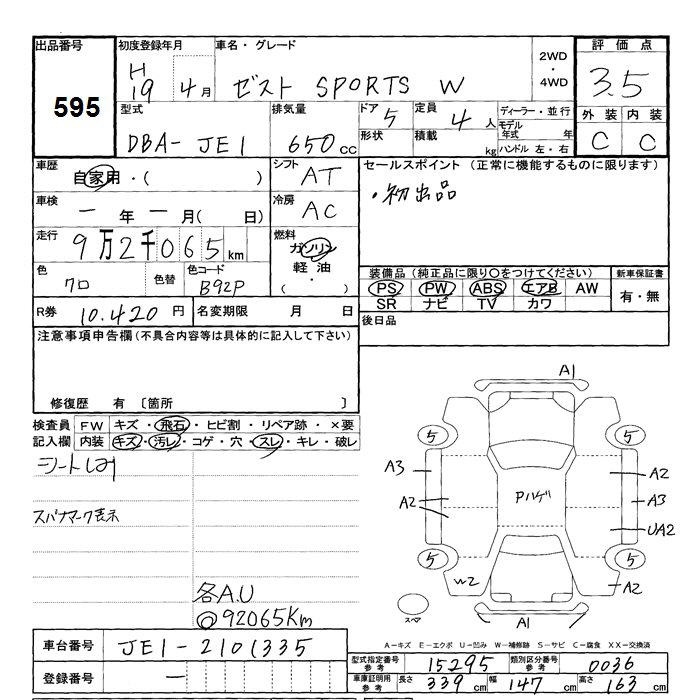 出品番号 初度登録年月 車名・グレード 2WD ・ 4WD 評価点
595 H19 4月 ゼスト SPORTS W 3.5
型式 排気量 ドア 5 定員 4人 ディーラー・並行 外装 内装
DBA-JE1 650cc 形状 積載 kg モデル年式 年 C C
ハンドル 左・右
車歴 自家用・( ) シフト AT セールスポイント (正常に機能するものに限ります)
車検 ー年ー月( 日) 冷房 AC ・初出品
走行 9万2千065km 燃料 ガソリン
軽油
( ・ )
色 クロ 色替 色コード B92P
装備品 (純正品に限り○をつけてください) 新車保証書
PS PW ABS エアB AW 有・無
SR ナビ TV カワ
R券 10.420円 名変期限 月 日 後日品
注意事項申告欄 (不具合内容等は具体的に記入して下さい)
修復歴 有 〔箇所 〕
検査員 FW キズ・飛石・ヒビ割・リペア跡・×要
記入欄 内装 キズ・汚レ・コゲ・穴・スレ・キレ・破レ
スパナマーク表示
各A.U
@92065Km
A1
5 5
A3 A2
A2 Pハゲ A3
UA2
5 5
W2 A2
スペア A1
A-キズ E-エクボ U-凹み W-補修跡 S-サビ C-腐食 XX-交換済
車台番号 JE1-2101335
型式指定番号 参考 15295 類別区分番号 参考 0036
登録番号 ー
車庫証明用 参考 長さ 339cm 幅 147cm 高さ 163cm